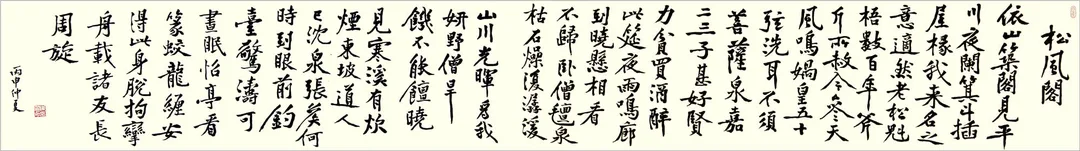 松風閣
依山築閣見平
川夜闌箕斗插
屋椽我來名之
意適然老松魁
梧數百年斧
斤所赦今參天
風鳴媧皇五十
弦洗耳不須
菩薩泉嘉
二三子甚好賢
力貧買酒醉
此筵夜雨鳴廊
到曉懸相看
不歸卧僧氈泉
枯石燥復潺湲
山川光暉為我
妍野僧旱
饑不能饘曉
見寒溪有炊
煙東坡道人
已沈泉張侯何
時到眼前釣
臺驚濤可
晝眠怡亭看
篆蛟龍纏安
得此身脫拘攣
舟載諸友長
周旋
丙申仲夏